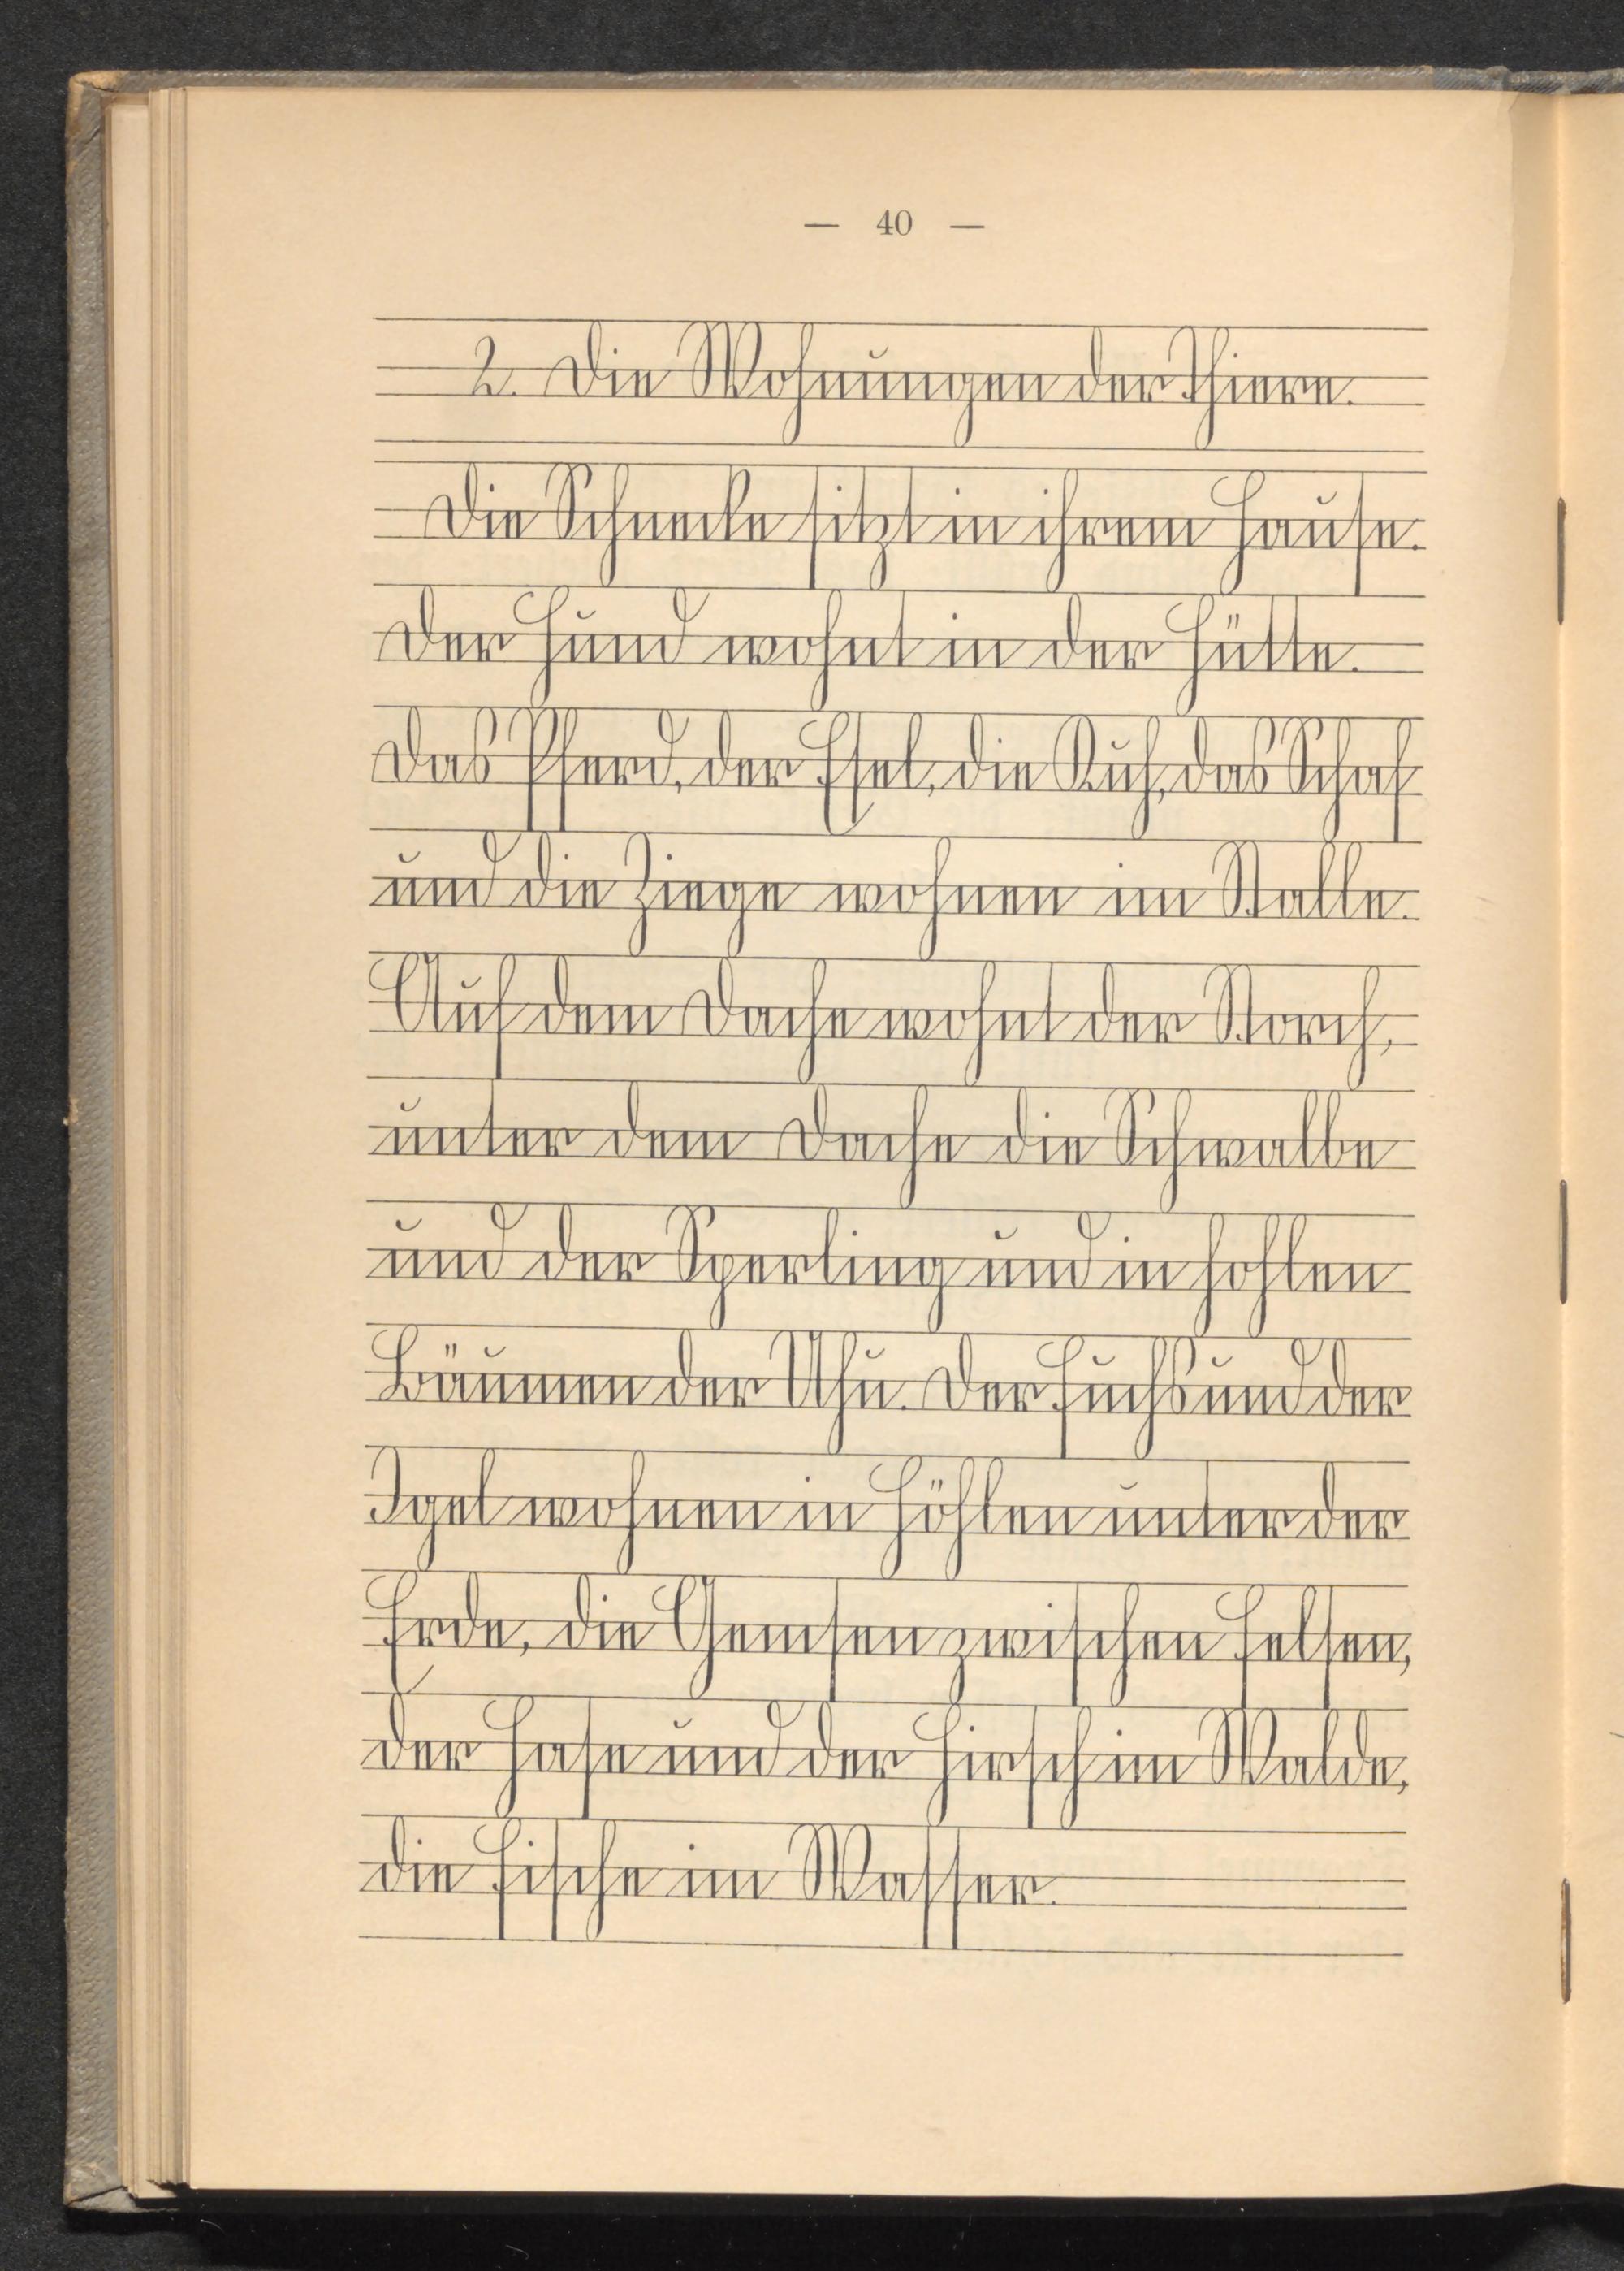 — 40 —
2. Die Wohnungen der Thiere.
Die Schnecke sitzt in ihrem Hause.
Der Hund wohnt in der Hütte.
Das Pferd, der Esel, die Kuh, das Schaf
und die Ziege wohnen im Stalle.
Auf dem Dache wohnt der Storch,
unter dem Dache die Schwalbe
und der Sperling und in hohlen
Bäumen der Uhu. Der Fuchs und der
Igel wohnen in Höhlen unter der
Erde, die Gemsen zwischen Felsen,
der Hase und der Hirsch im Walde,
die Fische im Wasser.